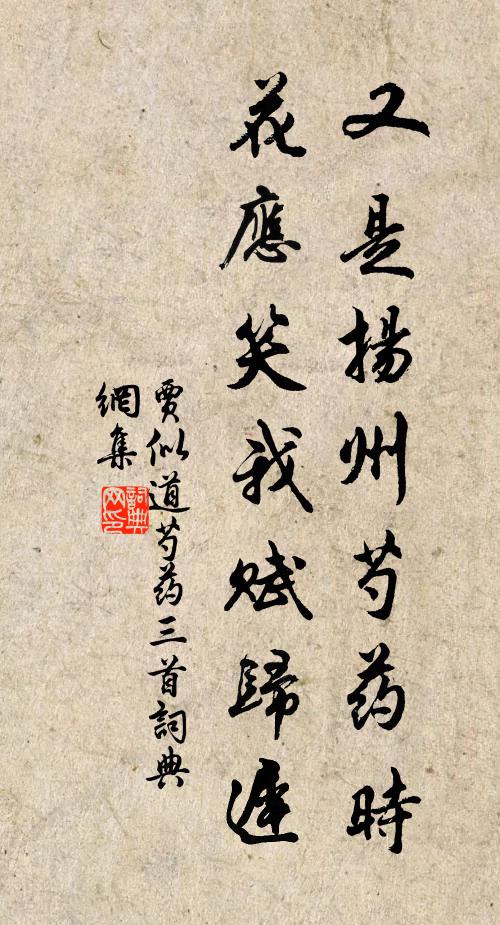 又是揚州芍药時
花應笑我賦歸遲
賈似道芍药三首詞典
網集
詞典网印